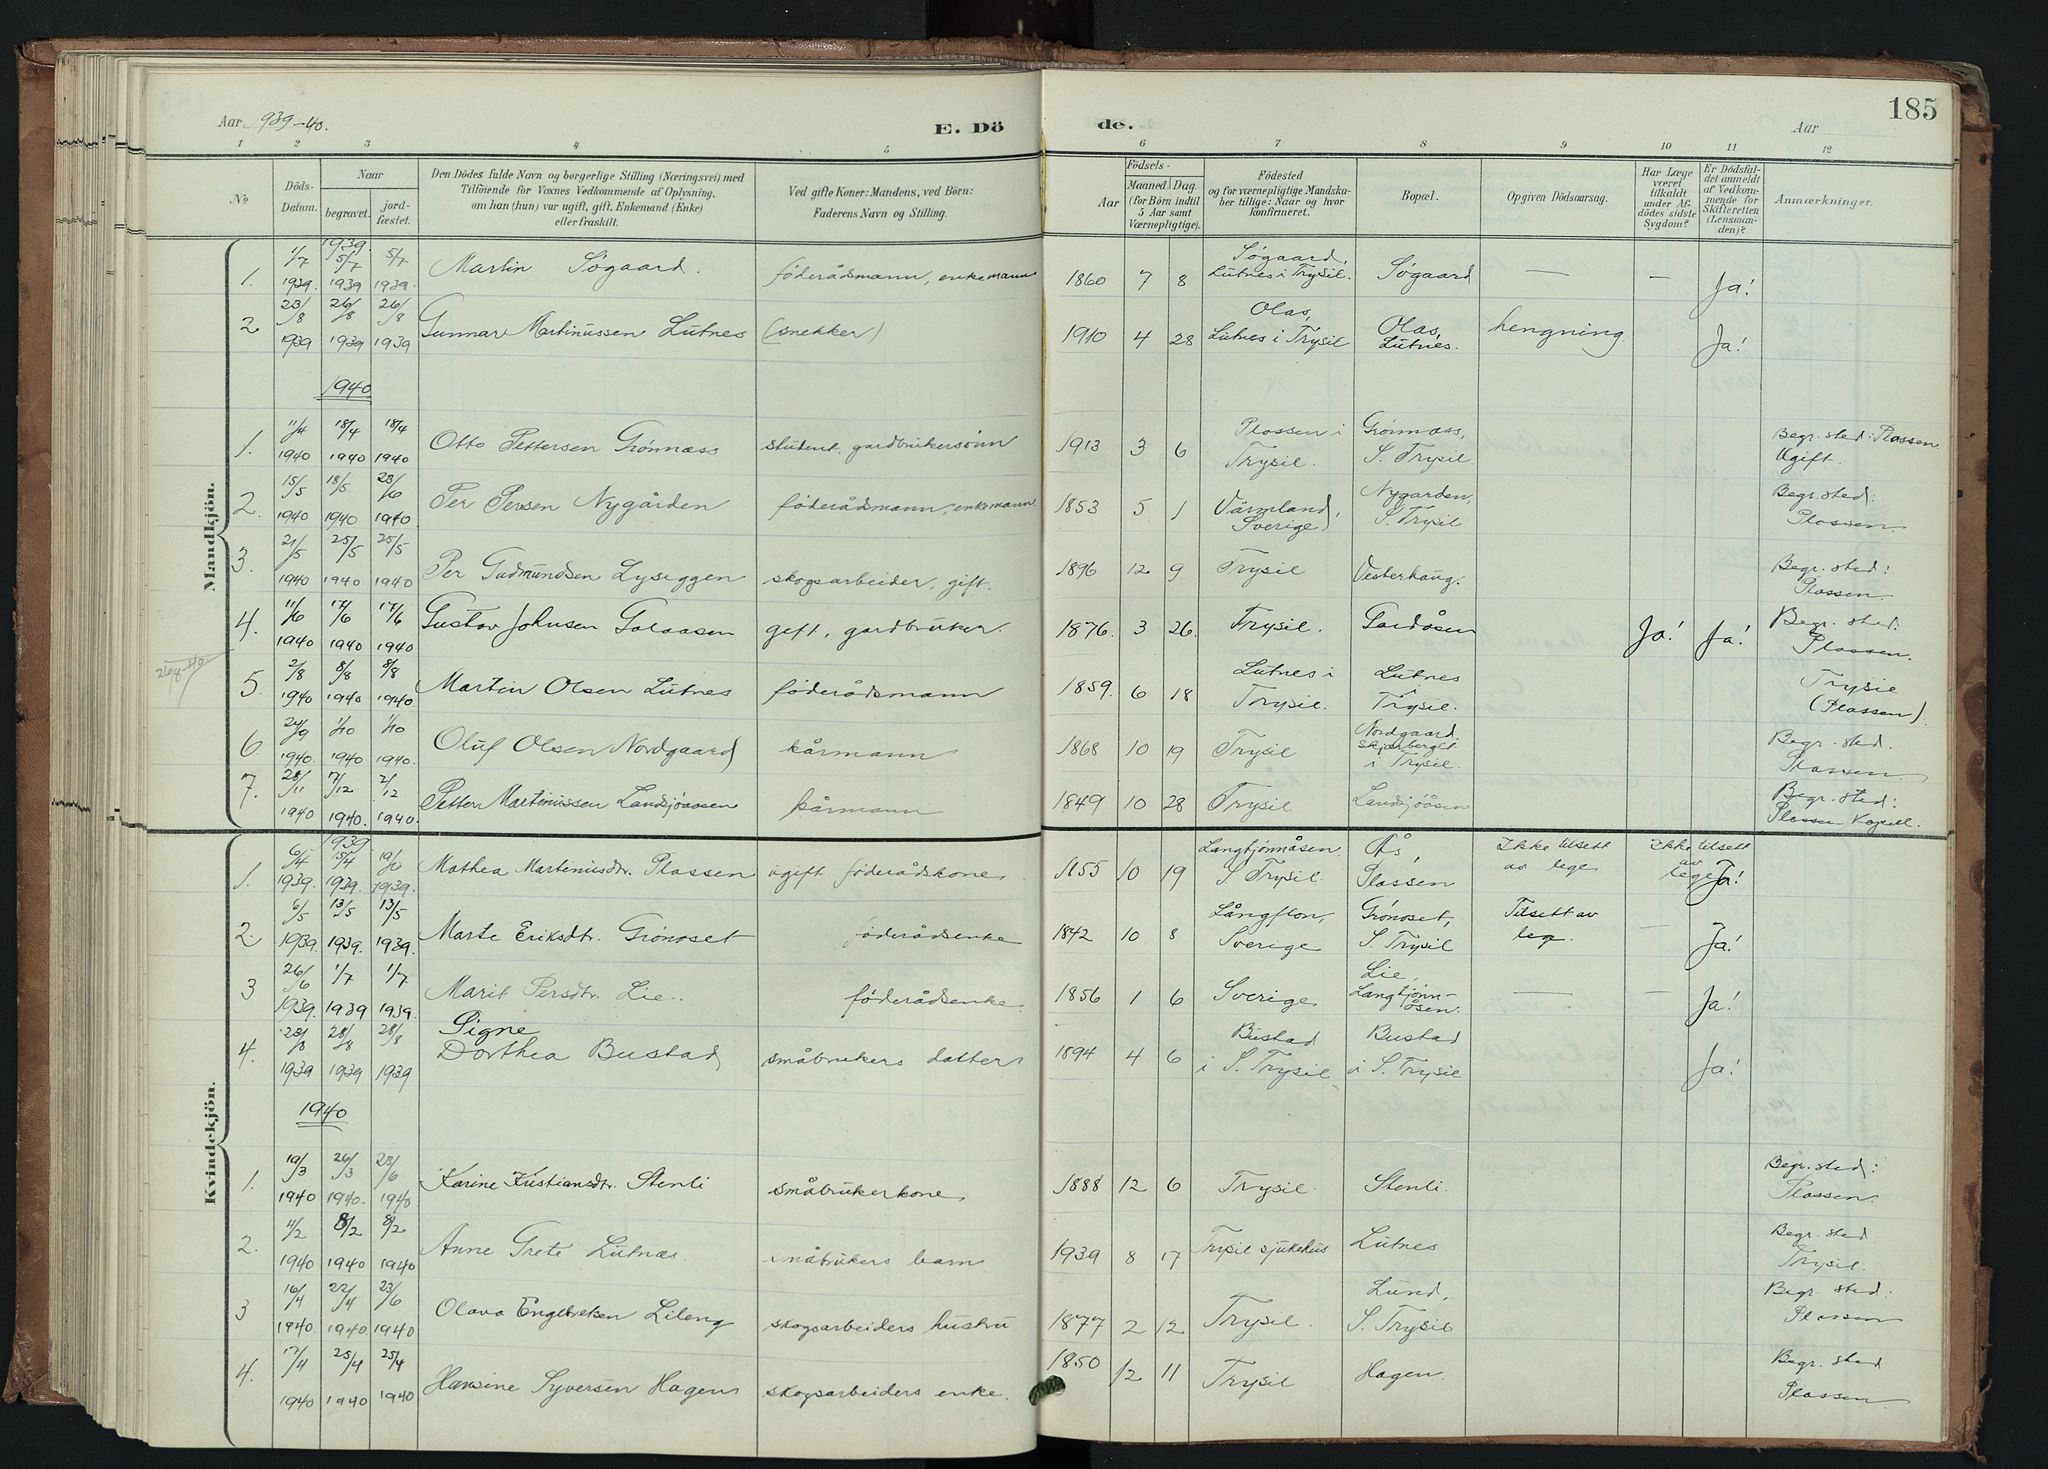 Aar 1939-40.
E. Dö
de.
Aar
185
1 2 3 4 5 6 7 8 9 10 11 12
No
Döds-Datum.
Naar
begravet.
jord-fæstet.
Den Dödes fulde Navn og borgerlige Stilling (Næringsvei) med
Tilföiende for Voxnes Vedkommende af Oplysning,
om han (hun) var ugift, gift, Enkemand (Enke)
eller fraskilt.
Ved gifte Koner: Mandens, ved Börn:
Faderens Navn og Stilling.
Födsels-
Aar
Maaned Dag
(for Börn indtil
5 Aar samt
Værnepligtige).
Födested
og for værnepligtige Mandska-
ber tillige: Naar og hvor
konfirmeret.
Bopæl.
Opgiven Dödsaarsag.
Har Læge
været
tilkaldt
under Af-
dödes sidste
Sygdom?
Er Dödsfal-
det anmeldt
af Vedkom-
mende for
Skifteretten
(Lensman-
den)?
Anmærkninger.
Mandkjön.
1939.
1. 1/7 1939. 5/7 1939 5/7 1939. Martin Søgaard. föderådsmann, enkemann 1860 7 8 Søgaard, Lutnes i Trysil. Søgaard — — Ja!
2. 23/8 1939 26/8 1939 26/8 1939 Gunnar Martinussen Lutnes (snekker) 1910 4 28 Olas, Lutnes i Trysil Olas, Lutnes. hengning Ja!
1940
1. 11/4 1940 18/4 1940 18/4 1940 Otto Pettersen Grønnæss student, gardbrukersönn 1913 3 6 Plassen i Trysil. Grønnæss, S. Trysil Begr. sted: Plassen Ugift.
2. 15/5 1940 18/5 1940 23/6 1940. Per Persen Nygården föderådsmann, enkemann. 1853 5 1 Värmland, Sverige Nygarden, S. Trysil Begr. sted: Plassen
3. 21/5 1940 25/5 1940 25/5 1940 Per Gudmundsen Lyseggen skogsarbeider, gift. 1896 12 9 Trysil Vesterhaug. Begr. sted: Plassen.
4. 11/6 1940 17/6 1940 17/6 1940 Gustav Johnsen Galaasen gift, gardbruker. 1876. 3 26. Trysil. Ja! Ja! Begr. sted: Plassen.
26/8-40
5. 2/8 1940 8/8 1940 8/8 1940 Martin Olsen Lutnes föderådsmann 1859. 6 18 Lutnes i Trysil. Lutnes i Trysil. Trysil (Plassen).
6. 24/9 1940. 1/10 1940. 1/10 1940. Oluf Olsen Nordgaard kårmann 1868 10 19 Trysil Nordgaard, Skjærberget i Trysil. Begr. sted. Plassen.
7. 28/11 1940 7/12 1940. 7/12 1940. Petter Martinussen Landsjöaasen kårmann 1849 10 28 Trysil Landsjöåsen Begr. sted: Plassen Kapell.
Kvindekjön.
1939
1. 6/4 1939. 15/4 1939. 1939. Mathea Martinusdtr. Plassen ugift föderådskone 1855 10 19 Langtjönnåsen S. Trysil. Ås, Plassen Ikke tilsett av lege Ikke tilsett av lege Ja!
2. 6/5 1939. 13/5 1939. 13/5 1939. Marte Eriksdtr. Grönoset föderådsenke 1842 10 8 Långflon, Sverige Grönoset, S. Trysil Tilsett av lege. — Ja!
3 26/6 1939. 1/7 1939 1/7 1939. Marit Persdtr. Lie. föderådsenke. 1856 1 6 Sverige Lie, Langtjönnåsen. — — Ja!
4. 23/8 1939 28/8 1939 28/8 1939 Signe Dorthea Bustad småbrukers datter 1894 4 6 Bustad i S. Trysil Bustad i S. Trysil Ja!
1940
1. 19/3 1940 26/3 1940. 23/6 1940 Karine Kristiansdtr. Stenli småbrukerkone 1888 12 6 Trysil. Stenli. Begr. sted: Plassen.
2. 4/2 1940 8/2 1940 8/2 1940 Anne Grete Lutnæs. småbrukers barn 1939 8 17 Trysil sjukehus Lutnes Begr. sted. Trysil.
3 16/4 1940. 22/4 1940. 23/6 1940 Olava Engebretsen Lileng skogsarbeiders hustru. 1877 2 12 Trysil. Lund, S. Trysil Begr. sted: Plassen
4. 17/4 1940 25/4 1940 25/4 1940 Hansine Syversen Hagen skogsarbeiders enke. 1850 12 11 Trysil Hagen. Begr. sted Plassen